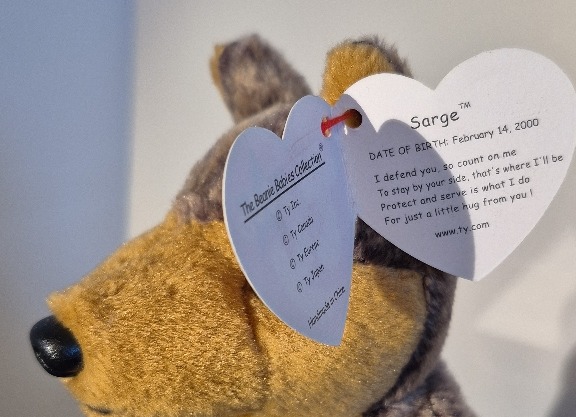 The Beanie Babies Collection®
© Ty Inc.
© Ty Canada
© Ty Europe
© Ty Japan
Handmade in China
Sarge™
DATE OF BIRTH: February 14, 2000
I defend you, so count on me
To stay by your side, that's where I'll be
Protect and serve is what I do
For just a little hug from you !
www.ty.com